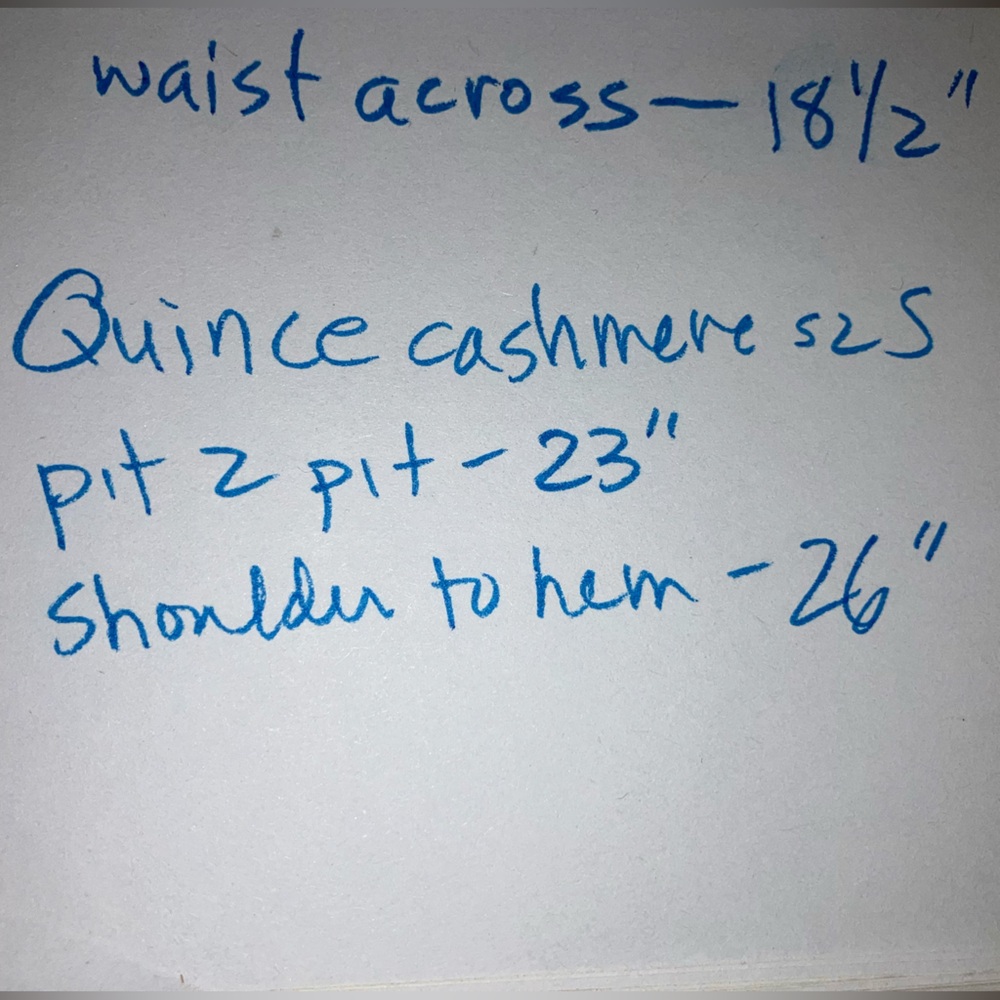 waist across — 18 1/2"
Quince cashmere sz S
pit 2 pit - 23"
shoulder to hem - 26"